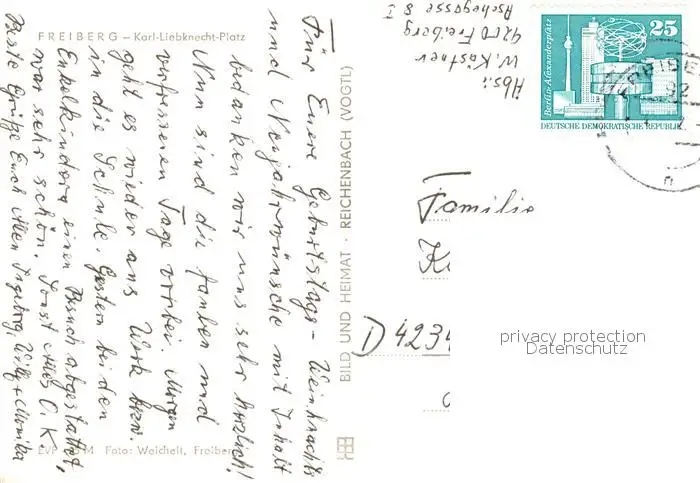 FREIBERG – Karl-Liebknecht-Platz
Für Euere Geburtstags- Weihnachts
und Neujahrwünsche mit Inhalt
bedanken wir uns sehr herzlich!
Nun sind die faulen und
verfressenen Tage vorbei. Morgen
geht es wieder ans Werk bzw.
in die Schule. Gestern bei den
Enkelkindern einen Besuch abgestattet,
war sehr schön. Sonst alles O.K.
Beste Grüße Euch allen Ingeborg, Willy + Monika
EVP M Foto: Weichelt, Freiberg
BILD UND HEIMAT · REICHENBACH (VOGTL)
Abs.:
W. Kästner
9200 Freiberg
Aschegasse 8 I
Berlin-Alexanderplatz
25
DEUTSCHE DEMOKRATISCHE REPUBLIK
FREIBE
92
Familie
K
D 4234
privacy protection
Datenschutz